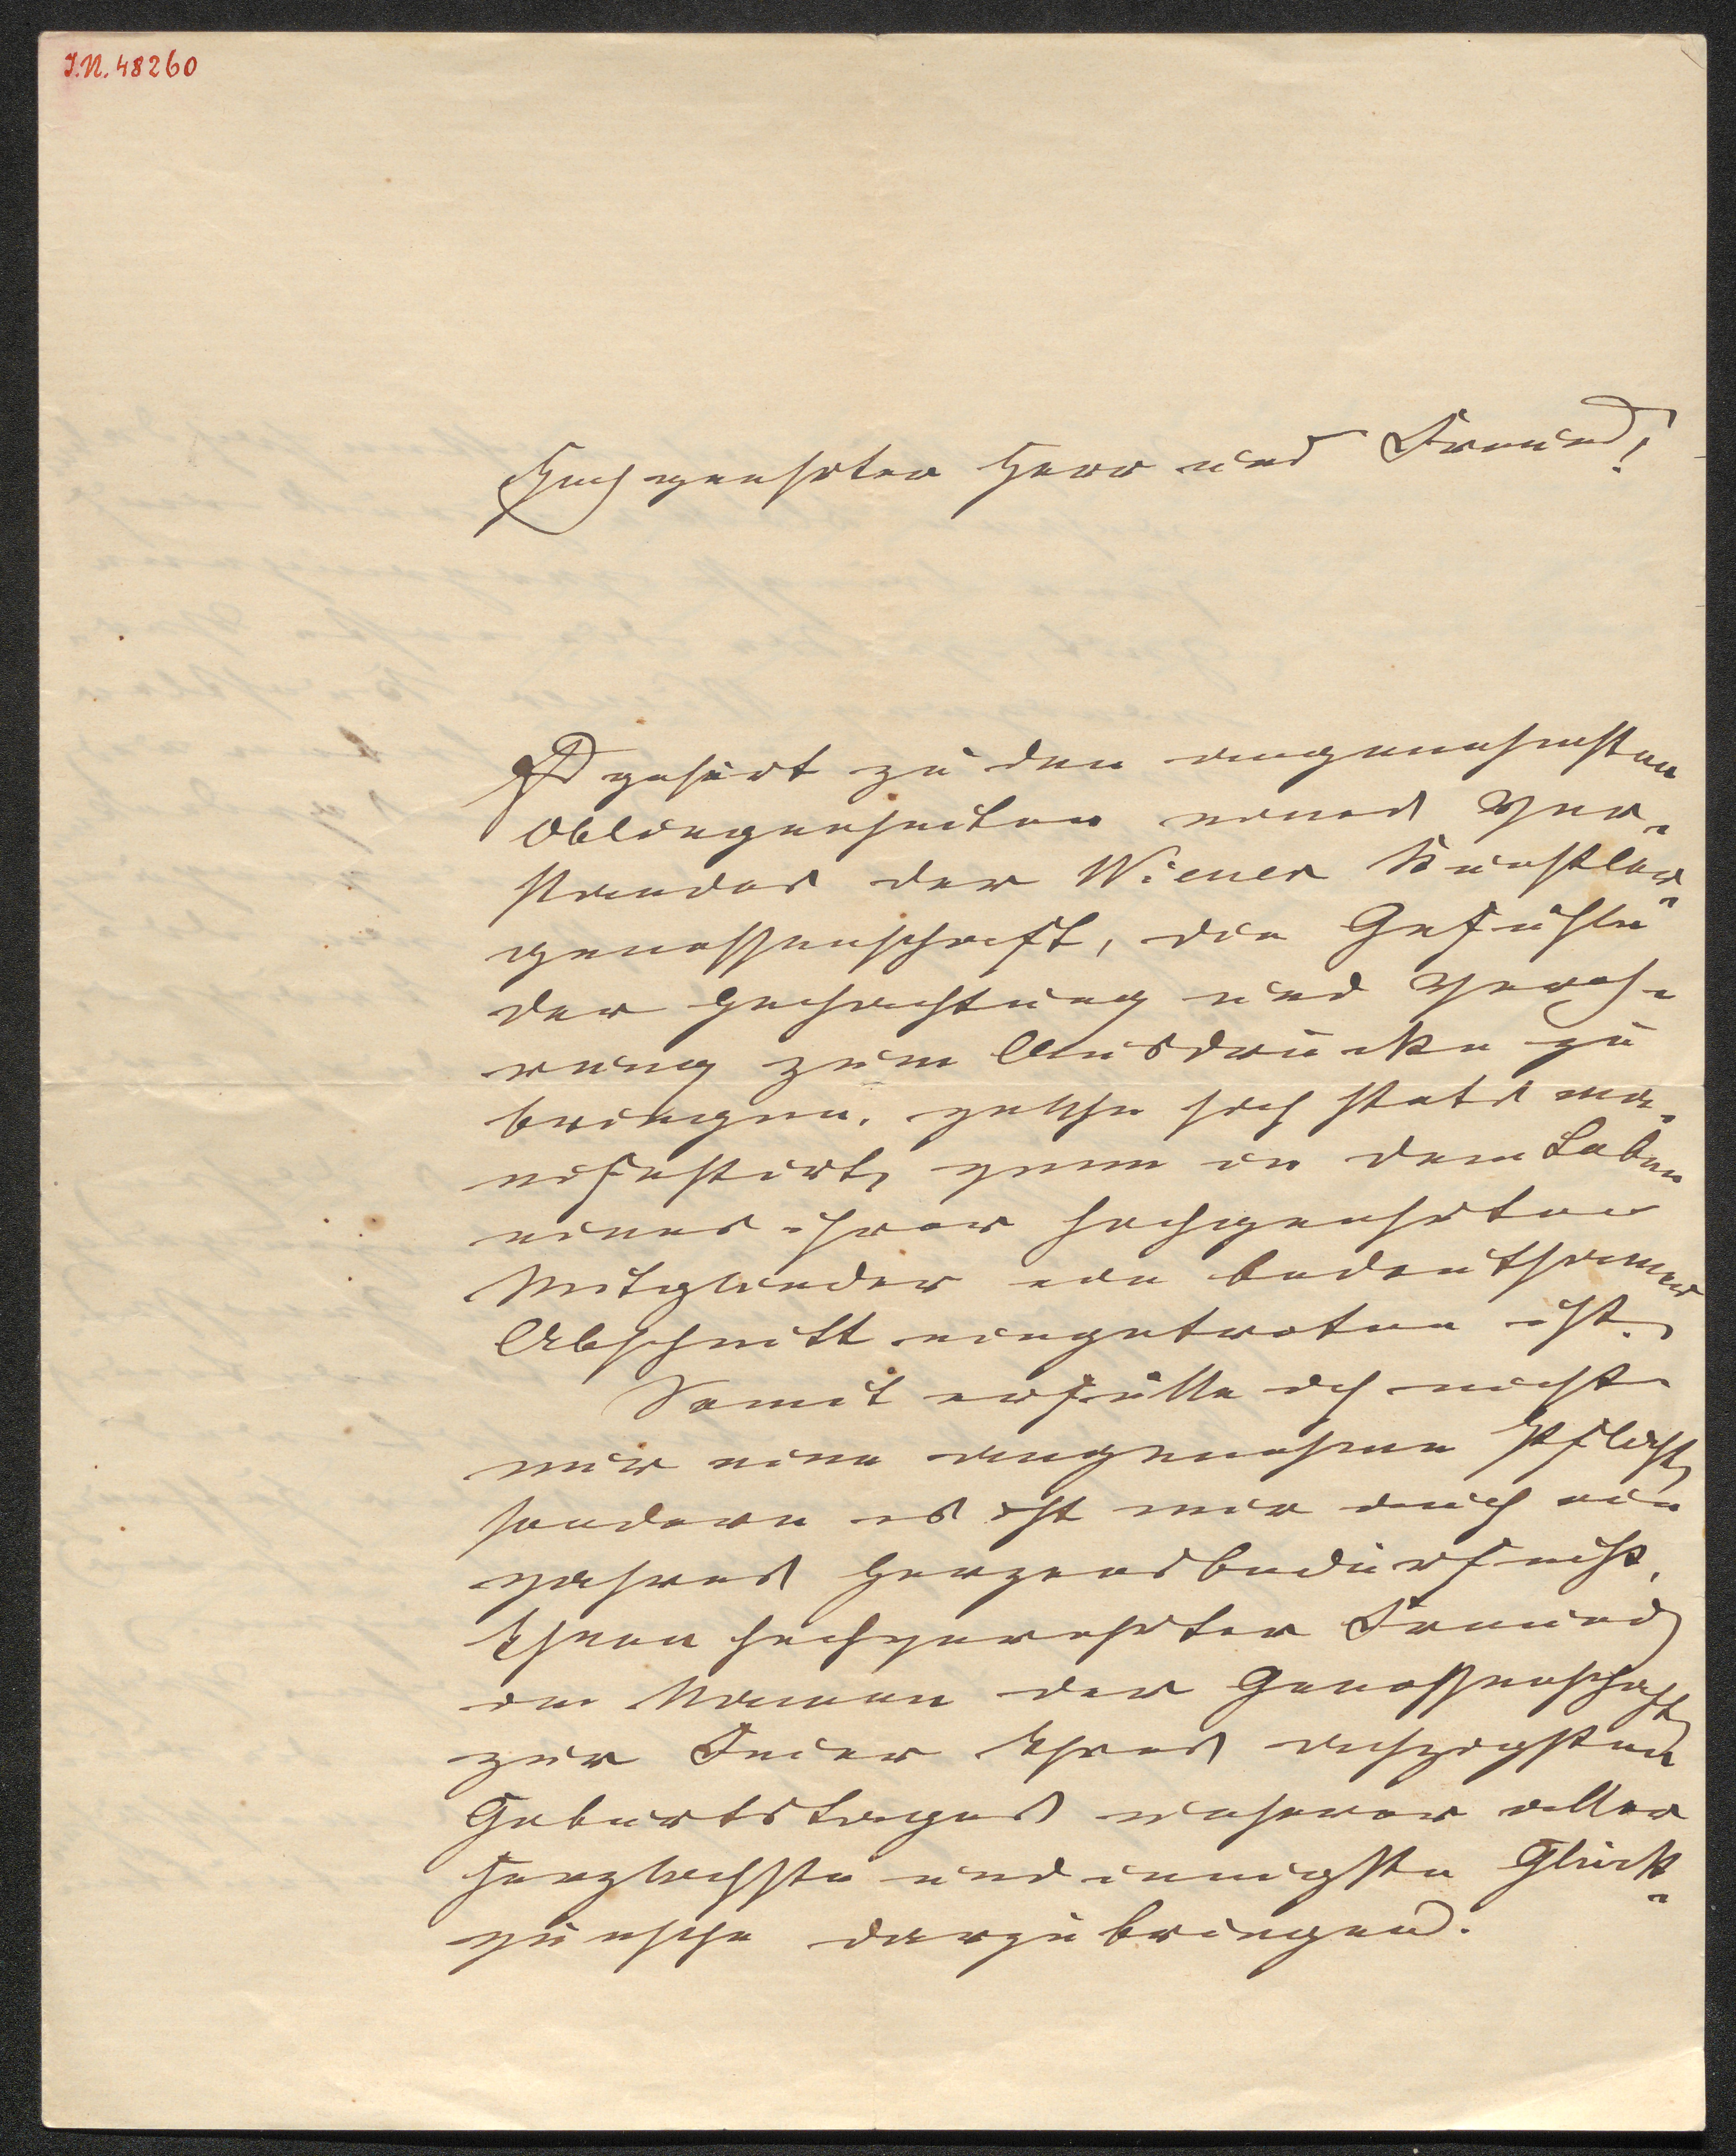 I.N. 48260
Hochgeehrter Herr und Freund!
Es gehört zu den angenehmsten
Obliegenheiten eines Vor-
standes der Wiener Künstler-
genossenschaft, die Gefühle
der Hochachtung und Vereh-
rung zum Ausdrucke zu
bringen, welche sich stets ma-
nifestirt, wenn in dem Leben
eines ihrer hochgeehrten
Mitglieder ein bedeutsamer
Abschnitt eingetreten ist.
Somit erfülle ich nicht
nur eine angenehme Pflicht,
sondern es ist mir auch ein
wahres Herzensbedürfniß,
Ihnen hochverehrter Freund
im Namen der Genossenschaft
zur Feier Ihres achzigsten
Geburtstages unserer aller
herzlichste und innigste Glück-
wünsche darzubringen.